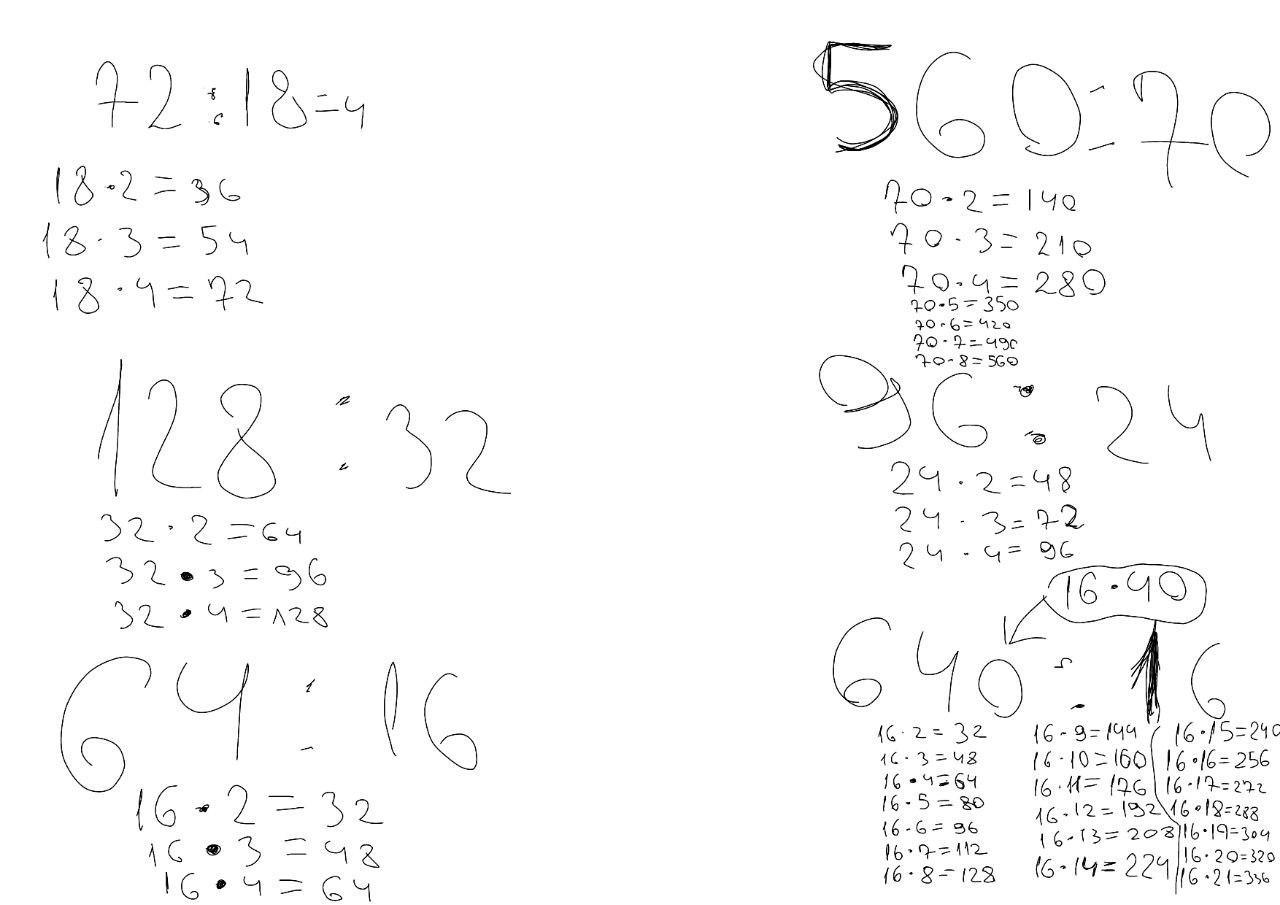 72:18=4
18·2=36
18·3=54
18·4=72
128:32
32·2=64
32·3=96
32·4=128
64:16
16·2=32
16·3=48
16·4=64
560:70
70·2=140
70·3=210
70·4=280
70·5=350
70·6=420
70·7=490
70·8=560
96:24
24·2=48
24·3=72
24·4=96
16·40
640:16
16·2=32
16·3=48
16·4=64
16·5=80
16·6=96
16·7=112
16·8=128
16·9=144
16·10=160
16·11=176
16·12=192
16·13=208
16·14=224
16·15=240
16·16=256
16·17=272
16·18=288
16·19=304
16·20=320
16·21=336